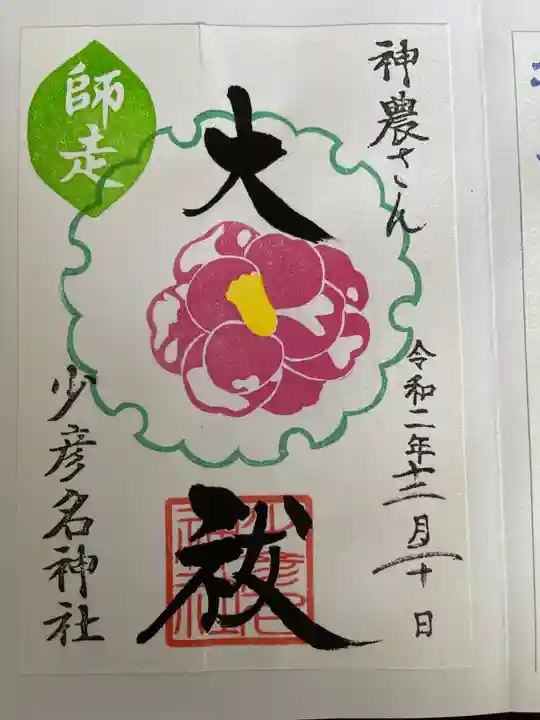 神農さん
令和二年十二月十日
大祓
師走
少彦名神社
少彦名
神社